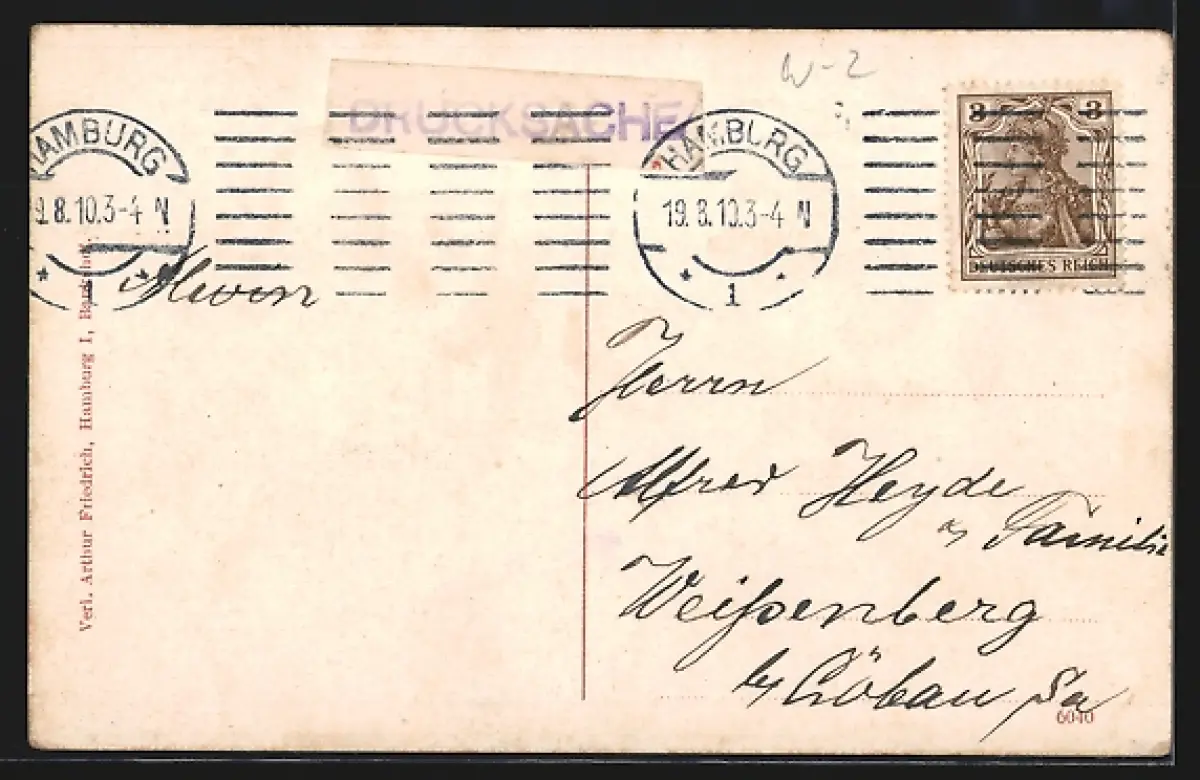 W-2
DRUCKSACHE
HAMBURG
19.8.10.3-4 N
* 1 *
HAMBURG
9.8.10.3-4 N
* 1 *
3 3
DEUTSCHES REICH
Herrn
Alfred Heyde
u Familie
Weißenberg
b/ Löbau Sa
6040
Verl. Arthur Friedrich, Hamburg I,